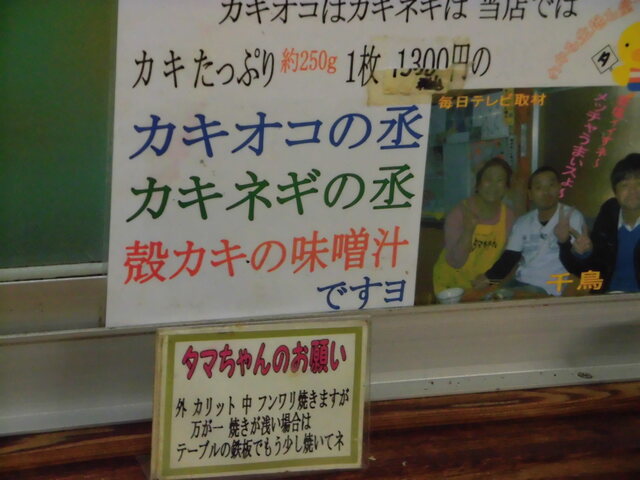 カキオコはカキネギは 当店では
カキたっぷり 約250g 1枚 1300円の
カキオコの丞
カキネギの丞
殻カキの味噌汁
ですヨ
毎日テレビ取材
メッチャうまいスよ〜
千鳥
タ
タマちゃんのお願い
外 カリット 中 フンワリ焼きますが
万が一 焼きが浅い場合は
テーブルの鉄板でもう少し焼いてネ